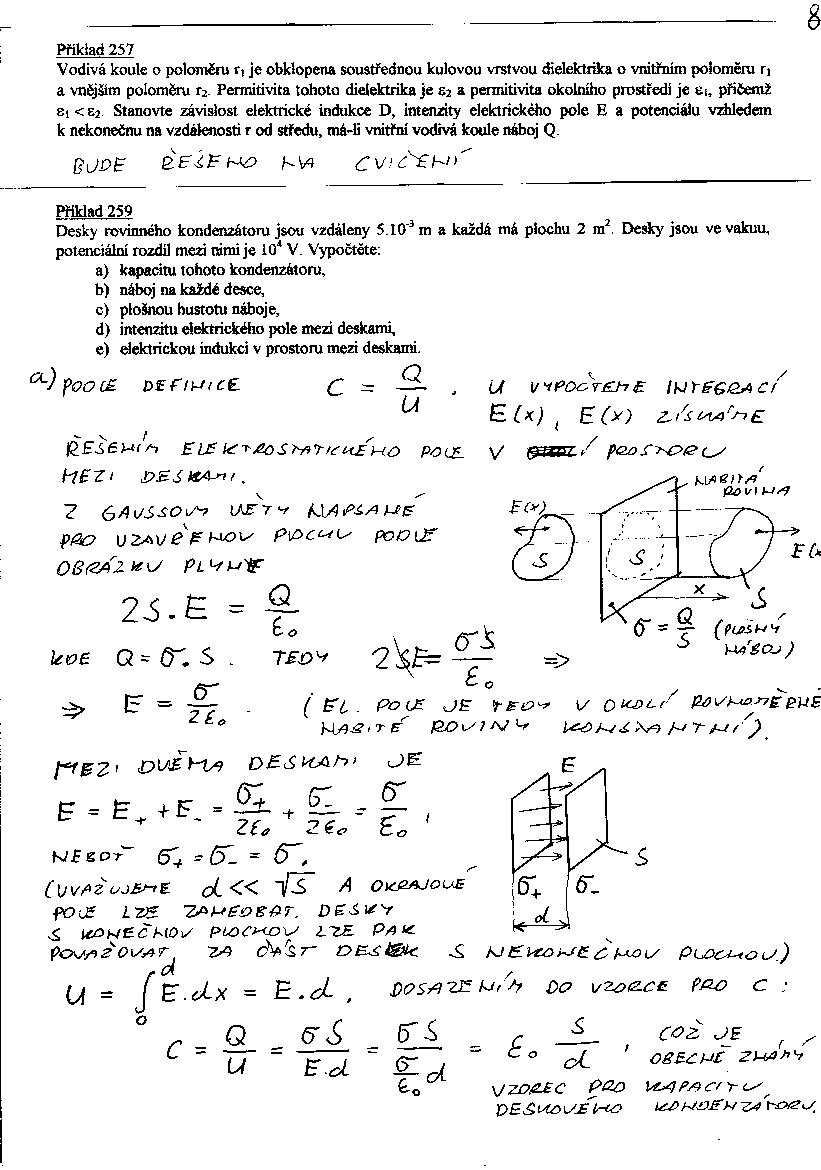 8
Příklad 257
Vodivá koule o poloměru r₁ je obklopena soustřednou kulovou vrstvou dielektrika o vnitřním poloměru r₁
a vnějším poloměru r₂. Permitivita tohoto dielektrika je ε₂ a permitivita okolního prostředí je ε₁, přičemž
ε₁ < ε₂. Stanovte závislost elektrické indukce D, intenzity elektrického pole E a potenciálu vzhledem
k nekonečnu na vzdálenosti r od středu, má-li vnitřní vodivá koule náboj Q.
BUDE ŘEŠENO NA CVIČENÍ
Příklad 259
Desky rovinného kondenzátoru jsou vzdáleny 5.10⁻³ m a každá má plochu 2 m². Desky jsou ve vakuu,
potenciální rozdíl mezi nimi je 10⁴ V. Vypočtěte:
a) kapacitu tohoto kondenzátoru,
b) náboj na každé desce,
c) plošnou hustotu náboje,
d) intenzitu elektrického pole mezi deskami,
e) elektrickou indukci v prostoru mezi deskami.
a) PODLE DEFINICE C = Q/U . U VYPOČTEME INTEGRACÍ
E(x), E(x) ZÍSKÁME
ŘEŠENÍM ELEKTROSTATICKÉHO POLE V PROSTORU
MEZI DESKAMI.
NABITÁ
ROVINA
Z GAUSSOVY VĚTY NAPSANÉ
PRO UZAVŘENOU PLOCHU PODLE
OBRÁZKU PLYNE
E(x)
S
S
E(x
x
S
2S.E = Q/ε₀
σ = Q/S (PLOŠNÝ
NÁBOJ)
KDE Q = σ.S . TEDY 2SE = σS/ε₀ ⇒
⇒ E = σ/2ε₀ . (EL. POLE JE TEDY V OKOLÍ ROVNOMĚRNĚ
NABITÉ ROVINY KONSTANTNÍ).
MEZI DVĚMA DESKAMI JE
E = E₊ + E₋ = σ₊/2ε₀ + σ₋/2ε₀ = σ/ε₀ ,
NEBOŤ σ₊ = σ₋ = σ.
E
S
σ₊ σ₋
d
(UVAŽUJEME d << √S A OKRAJOVÉ
POLE LZE ZANEDBAT. DESKY
S KONEČNOU PLOCHOU LZE PAK
POVAŽOVAT ZA ČÁST DESEK S NEKONEČNOU PLOCHOU.)
U = ∫₀ᵈ E.dx = E.d , DOSAZENÍM DO VZORCE PRO C :
C = Q/U = σS/E.d = σS/(σ/ε₀)d = ε₀ S/d , COŽ JE
OBECNĚ ZNÁMÝ
VZOREC PRO KAPACITU
DESKOVÉHO KONDENZÁTORU.